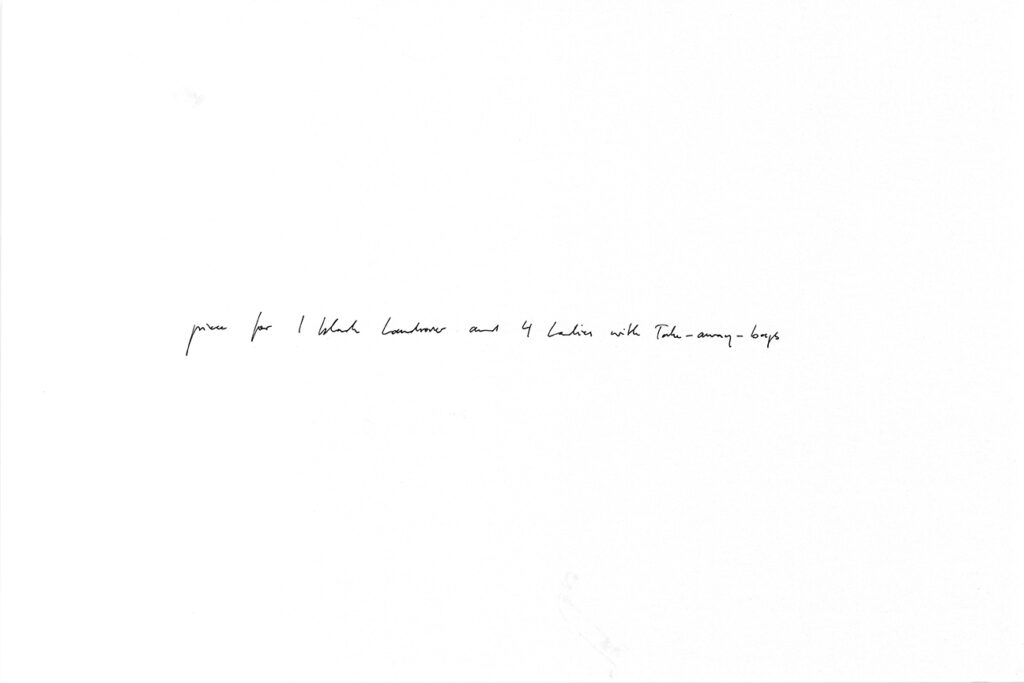 piece for 1 black Landrover and 4 Ladies with Take-away-bags